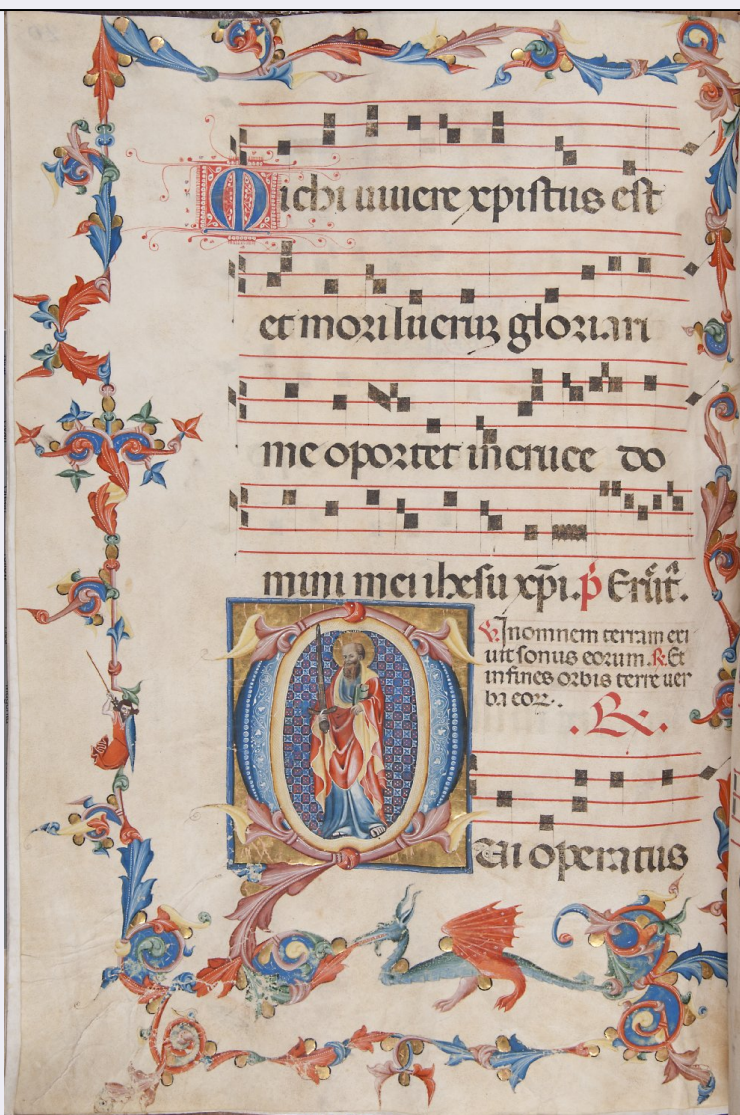 Michi uiuere xpistus est
et mori lucruʒ gloriari
me oportet in cruce do
mini mei ihesu xp̄i. p̄ Eruit.
V. In omnem terram exi
uit sonus eorum. R. Et
in fines orbis terre uer
ba eoꝝ.
R.
Qui operatus